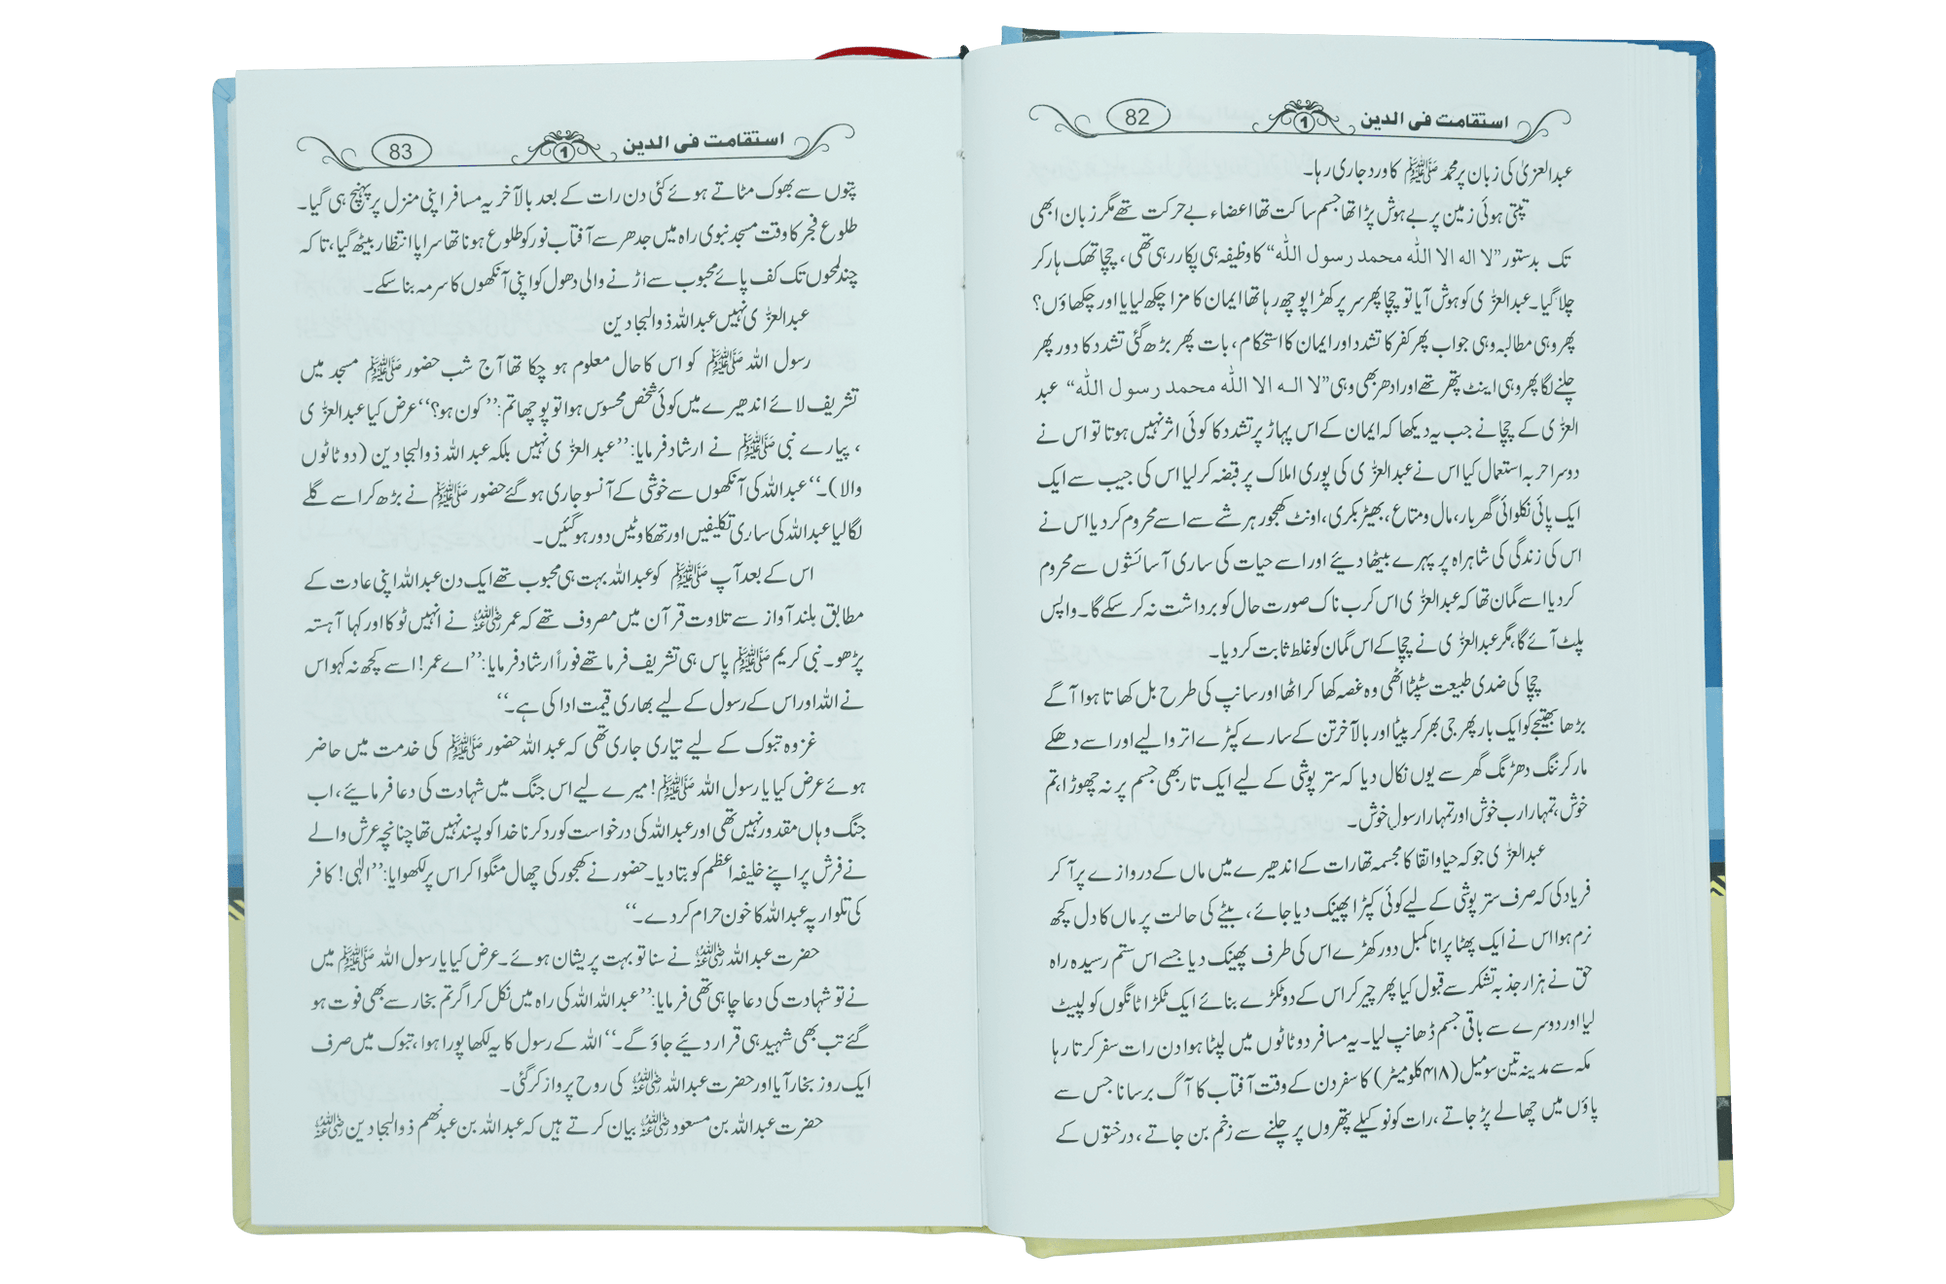 استقامت فی الدین 1 82
عبدالعزیٰ کی زبان پر محمد ﷺ کا ورد جاری رہا۔
تپتی ہوئی زمین پر بے ہوش پڑا تھا جسم ساکت تھا اعضاء بے حرکت تھے مگر زبان ابھی
تک بدستور ”لا اله الا الله محمد رسول الله“ کا وظیفہ ہی پکار رہی تھی، چچا تھک ہار کر
چلا گیا۔ عبدالعزّٰی کو ہوش آیا تو چچا پھر سر پر کھڑا پوچھ رہا تھا ایمان کا مزا چکھ لیا یا اور چکھاؤں؟
پھر وہی مطالبہ وہی جواب پھر کفر کا تشدد اور ایمان کا استحکام، بات پھر بڑھ گئی تشدد کا دور پھر
چلنے لگا پھر وہی اینٹ پتھر تھے اور ادھر بھی وہی ”لا اله الا الله محمد رسول الله“ عبد
العزّٰی کے چچا نے جب یہ دیکھا کہ ایمان کے اس پہاڑ پر تشدد کا کوئی اثر نہیں ہوتا تو اس نے
دوسرا حربہ استعمال کیا اس نے عبدالعزّٰی کی پوری املاک پر قبضہ کر لیا اس کی جیب سے ایک
ایک پائی نکلوائی گھر بار، مال و متاع، بھیڑ بکری، اونٹ کھجور ہر شے سے اسے محروم کر دیا اس نے
اس کی زندگی کی شاہراہ پر پہرے بیٹھا دیئے اور اسے حیات کی ساری آسائشوں سے محروم
کر دیا اسے گمان تھا کہ عبدالعزّٰی اس کرب ناک صورت حال کو برداشت نہ کر سکے گا۔ واپس
پلٹ آئے گا، مگر عبدالعزّٰی نے چچا کے اس گمان کو غلط ثابت کر دیا۔
چچا کی ضدی طبیعت سٹپٹا اٹھی وہ غصہ کھا کر اٹھا اور سانپ کی طرح بل کھاتا ہوا آگے
بڑھا بھتیجے کو ایک بار پھر جی بھر کر پیٹا اور بالآخر تن کے سارے کپڑے اتروا لیے اور اسے دھکے
مار کر ننگ دھڑنگ گھر سے یوں نکال دیا کہ ستر پوشی کے لیے ایک تار بھی جسم پر نہ چھوڑا، تم
خوش، تمہارا رب خوش اور تمہارا رسول خوش۔
عبدالعزّٰی جو کہ حیا و اتقا کا مجسمہ تھا رات کے اندھیرے میں ماں کے دروازے پر آ کر
فریاد کی کہ صرف ستر پوشی کے لیے کوئی کپڑا پھینک دیا جائے، بیٹے کی حالت پر ماں کا دل کچھ
نرم ہوا اس نے ایک پھٹا پرانا کمبل دور کھڑے اس کی طرف پھینک دیا جسے اس ستم رسیدہ راہ
حق نے ہزار جذبہ تشکر سے قبول کیا پھر چیر کر اس کے دو ٹکڑے بنائے ایک ٹکڑا ٹانگوں کو لپیٹ
لیا اور دوسرے سے باقی جسم ڈھانپ لیا۔ یہ مسافر دو ٹاٹوں میں لپٹا ہوا دن رات سفر کرتا رہا
مکہ سے مدینہ تین سو میل (۴۱۸ کلومیٹر) کا سفر دن کے وقت آفتاب کا آگ برسانا جس سے
پاؤں میں چھالے پڑ جاتے، رات کو نوکیلے پتھروں پر چلنے سے زخم بن جاتے، درختوں کے
استقامت فی الدین 1 83
پتوں سے بھوک مٹاتے ہوئے کئی دن رات کے بعد بالآخر یہ مسافر اپنی منزل پر پہنچ ہی گیا۔
طلوع فجر کا وقت مسجد نبوی راہ میں جدھر سے آفتاب نور کو طلوع ہونا تھا سراپا انتظار بیٹھ گیا، تا کہ
چند لمحوں تک کف پائے محبوب سے اڑنے والی دھول کو اپنی آنکھوں کا سرمہ بنا سکے۔
عبدالعزّٰی نہیں عبداللہ ذوالبجادین
رسول اللہ ﷺ کو اس کا حال معلوم ہو چکا تھا آج شب حضور ﷺ مسجد میں
تشریف لائے اندھیرے میں کوئی شخص محسوس ہوا تو پوچھا تم: ”کون ہو؟“ عرض کیا عبدالعزّٰی
، پیارے نبی ﷺ نے ارشاد فرمایا: ”عبدالعزّٰی نہیں بلکہ عبداللہ ذوالبجادین (دو ٹاٹوں
والا)۔“ عبداللہ کی آنکھوں سے خوشی کے آنسو جاری ہو گئے حضور ﷺ نے بڑھ کر اسے گلے
لگا لیا عبداللہ کی ساری تکلیفیں اور تھکاوٹیں دور ہو گئیں۔
اس کے بعد آپ ﷺ کو عبداللہ بہت ہی محبوب تھے ایک دن عبداللہ اپنی عادت کے
مطابق بلند آواز سے تلاوت قرآن میں مصروف تھے کہ عمر رضی اللہ عنہ نے انہیں ٹوکا اور کہا آہستہ
پڑھو۔ نبی کریم ﷺ پاس ہی تشریف فرما تھے فوراً ارشاد فرمایا: ”اے عمر! اسے کچھ نہ کہو اس
نے اللہ اور اس کے رسول کے لیے بھاری قیمت ادا کی ہے۔“
غزوہ تبوک کے لیے تیاری جاری تھی کہ عبداللہ حضور ﷺ کی خدمت میں حاضر
ہوئے عرض کیا یا رسول اللہ ﷺ! میرے لیے اس جنگ میں شہادت کی دعا فرمائیے، اب
جنگ وہاں مقدور نہیں تھی اور عبداللہ کی درخواست کو رد کرنا خدا کو پسند نہیں تھا چنانچہ عرش والے
نے فرش پر اپنے خلیفہ اعظم کو بتا دیا۔ حضور نے کھجور کی چھال منگوا کر اس پر لکھوایا: ”الٰہی! کافر
کی تلوار پہ عبداللہ کا خون حرام کر دے۔“
حضرت عبداللہ رضی اللہ عنہ نے سنا تو بہت پریشان ہوئے۔ عرض کیا یا رسول اللہ ﷺ میں
نے تو شہادت کی دعا چاہی تھی فرمایا: ”عبداللہ اللہ کی راہ میں نکل کر اگر تم بخار سے بھی فوت ہو
گئے تب بھی شہید ہی قرار دیئے جاؤ گے۔“ اللہ کے رسول کا یہ لکھا پورا ہوا، تبوک میں صرف
ایک روز بخار آیا اور حضرت عبداللہ رضی اللہ عنہ کی روح پرواز کر گئی۔
حضرت عبداللہ بن مسعود رضی اللہ عنہ بیان کرتے ہیں کہ عبداللہ بن عبدنہم ذوالبجادین رضی اللہ عنہ